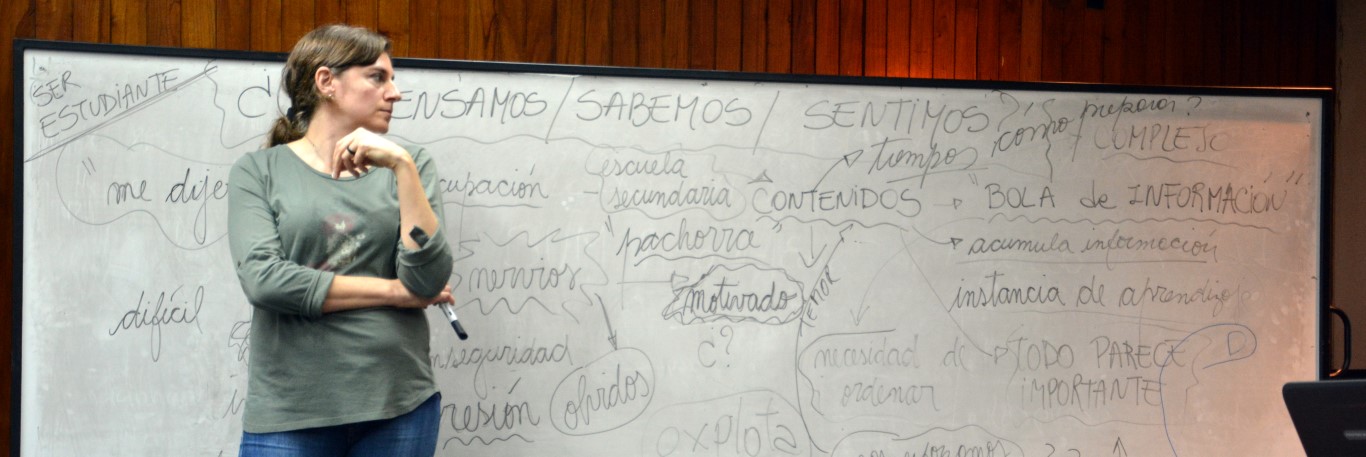 SER
ESTUDIANTE
ENSAMOS / SABEMOS / SENTIMOS ?
tiempos
como preparar?
COMPLEJO
"me dije
cupación
escuela
secundaria
CONTENIDOS
"BOLA de INFORMACIÓN"
"pachorra"
acumula información
nervios
motivado
instancia de aprendizaje
difícil
nseguridad
c?
necesidad de
ordenar
TODO PARECE
IMPORTANTE
resión
olvidos
explota